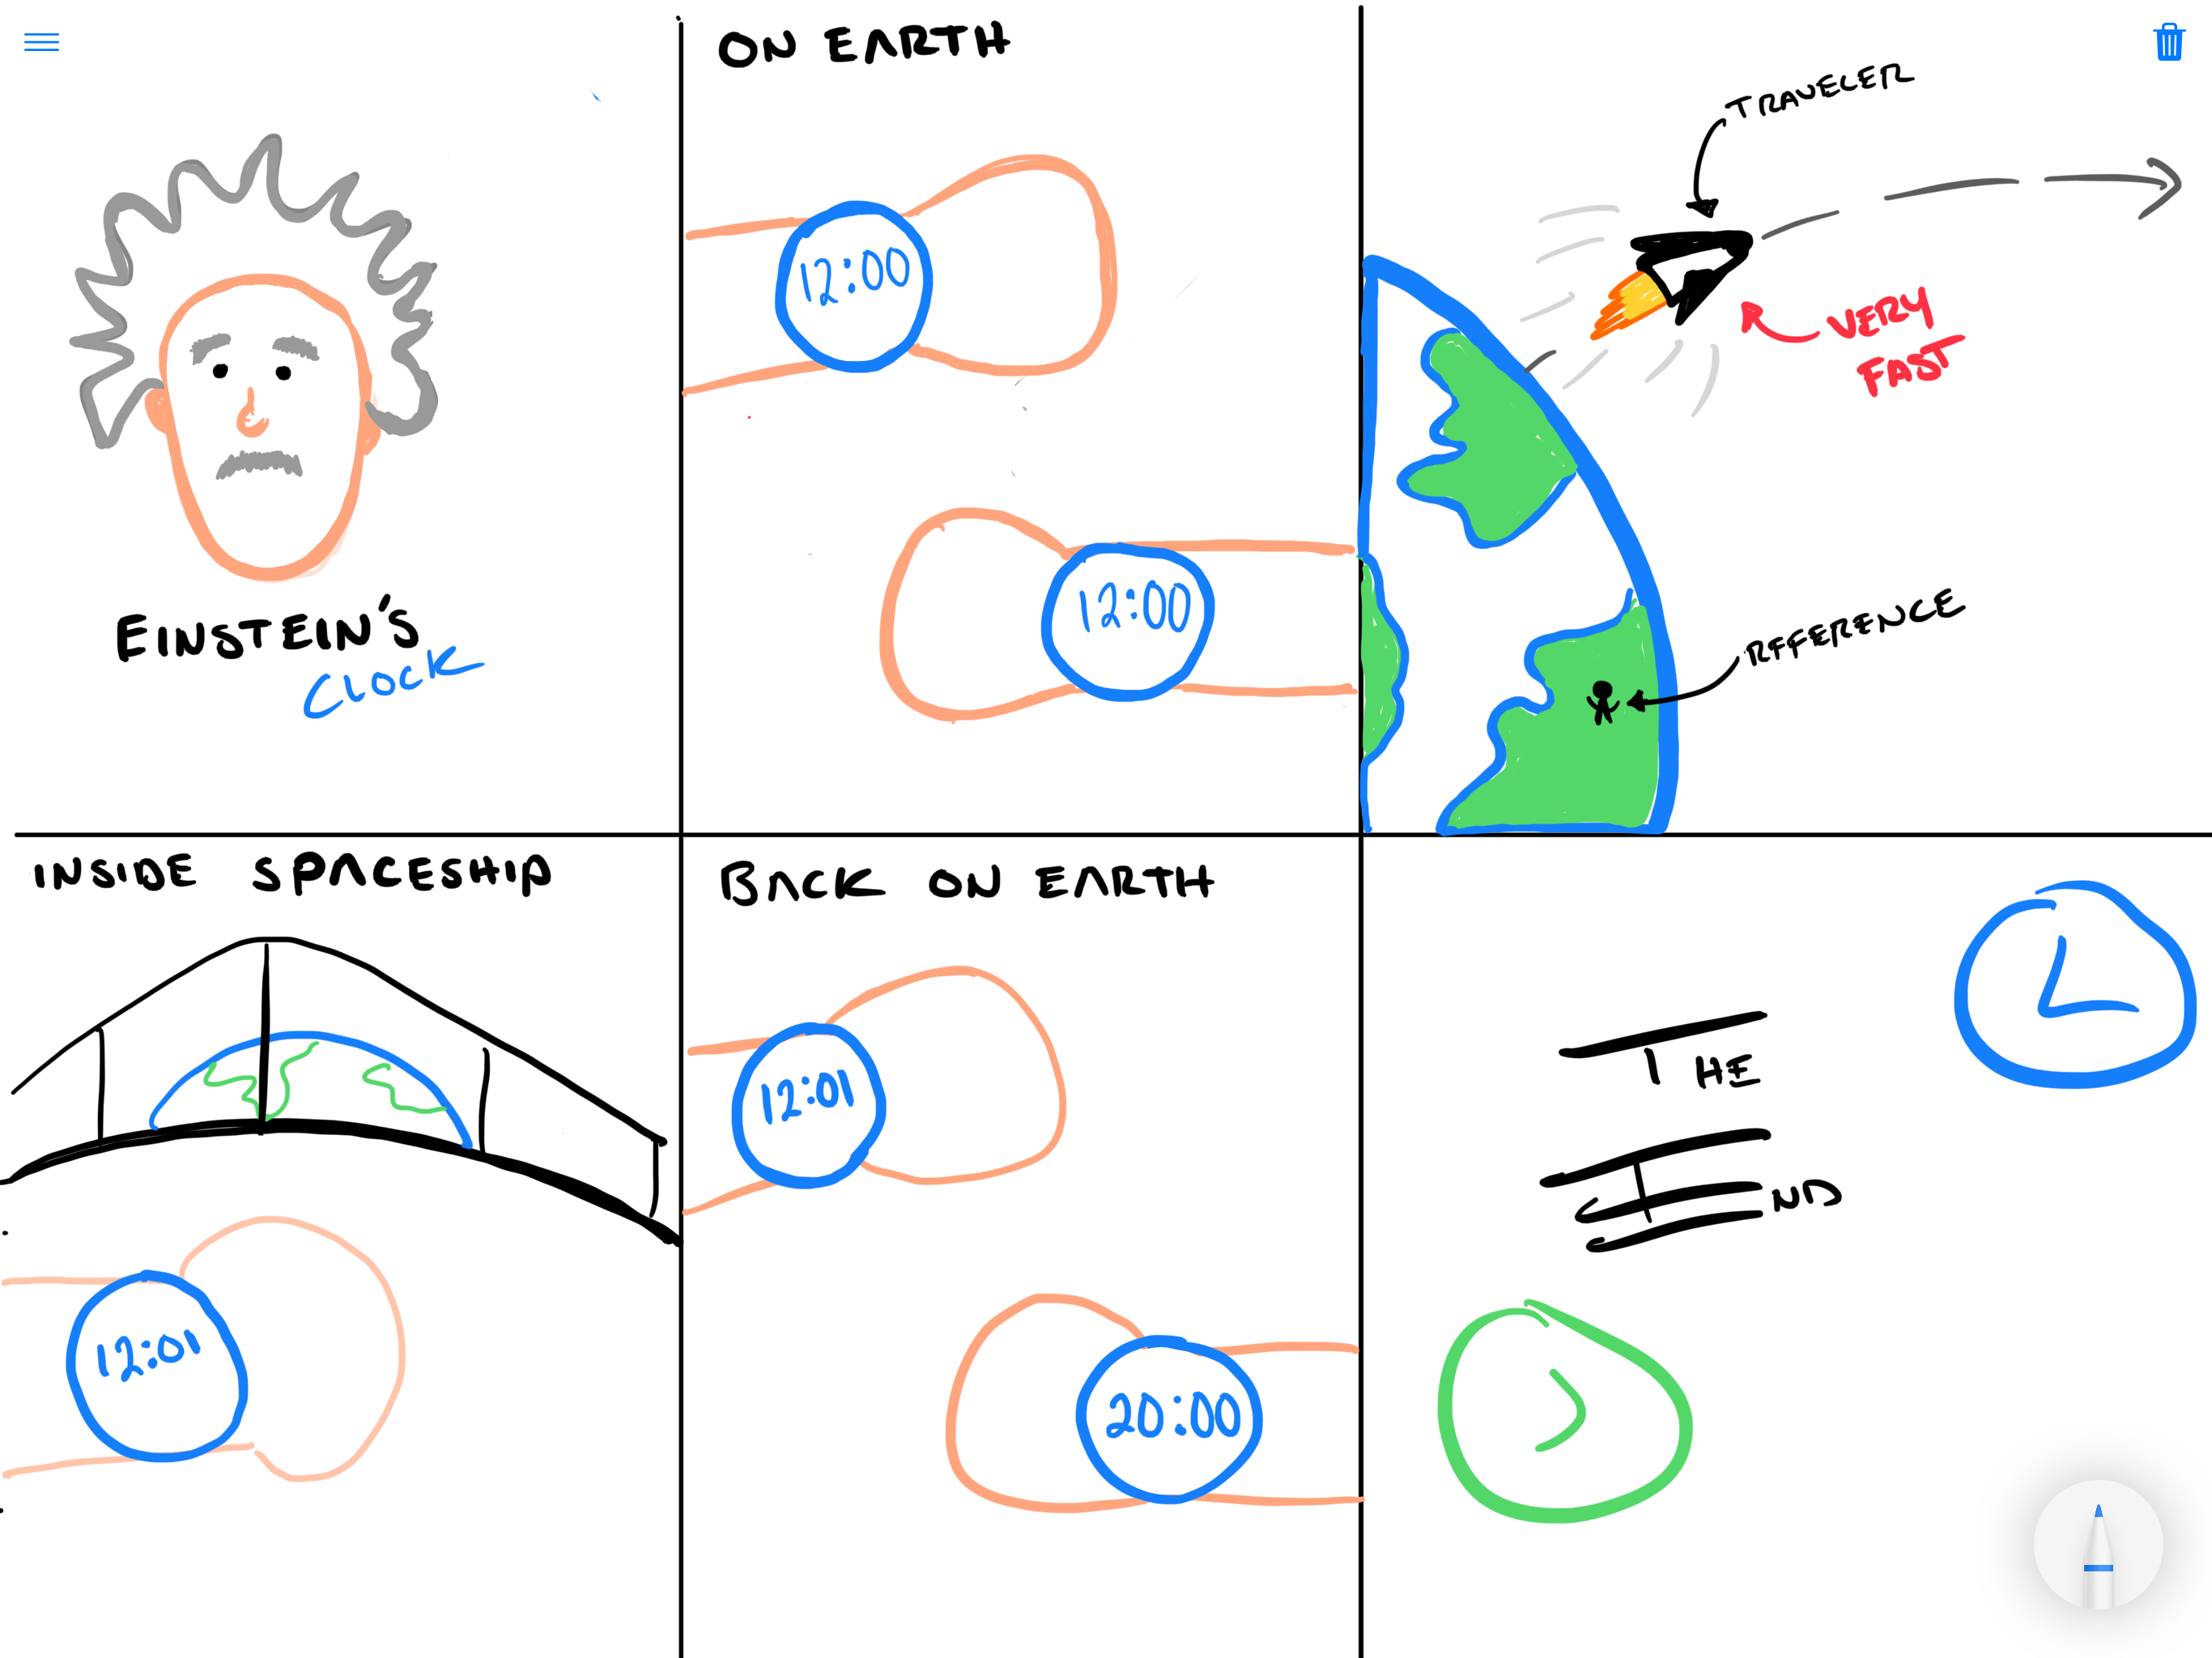 EINSTEIN'S
CLOCK
ON EARTH
12:00
12:00
TRAVELER
VERY
FAST
RFFERENCE
INSIDE SPACESHIP
12:01
BACK ON EARTH
12:01
20:00
THE
END